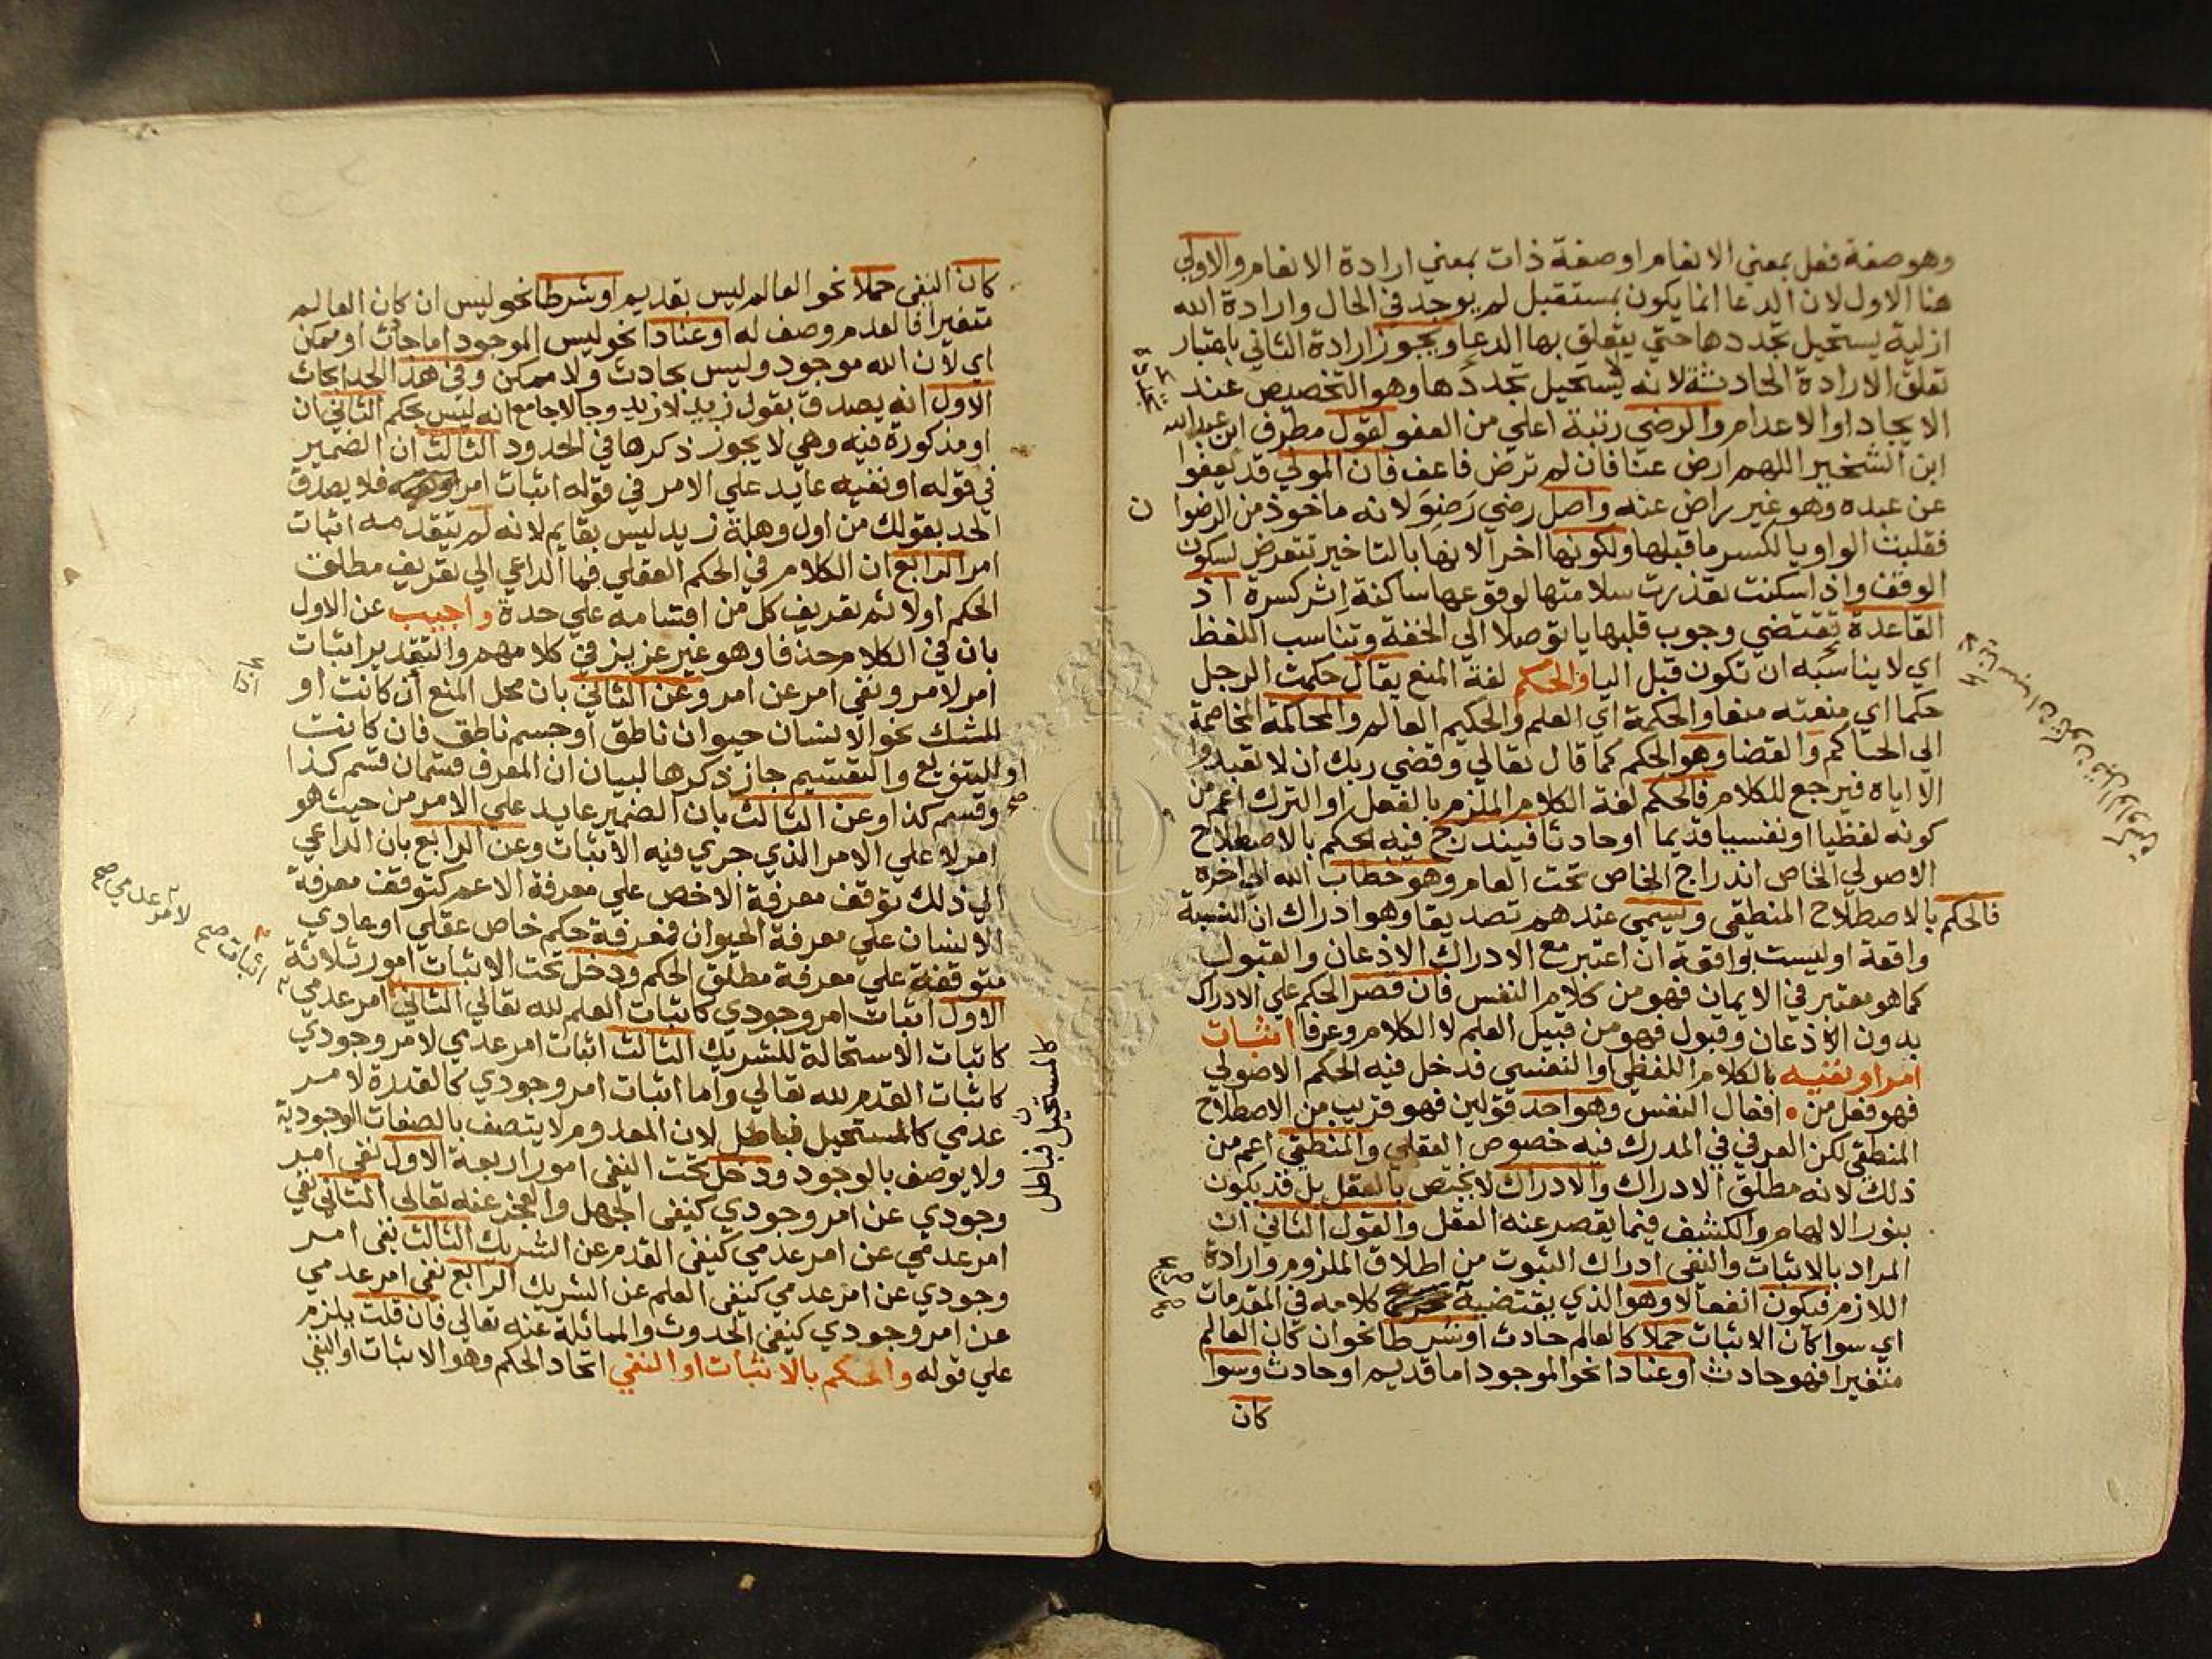 وهو صفة فعل بمعني الانعام او صفة ذات بمعني ارادة الانعام والاولي
هنا الاول لان الدعا انما يكون بمستقبل لم يوجد في الحال وارادة الله
ازلية يستحيل تجددها حتي يتعلق بها الدعا ويجوز ارادة الثاني باعتبار
تعلق الارادة الحادثة لانه لا يستحيل تجددها وهو التخصيص عند
الايجاد او الاعدام والرضي رتبة اعلي من العفو لقول مطرف ابن عبد الله
ابن الشخير اللهم ارض عنا فان لم ترض فاعف فان المولي قد يعفوا
عن عبده وهو غير راض عنه واصل رضي رَضِوَ لانه ماخوذ من الرضوا
ن
فقلبت الواو يا لكسر ما قبلها ولكونها اخرا لانها بالتاخير تتعرض لسكون
الوقف واذا سكنت تعذرت سلامتها لوقوعها ساكنة اثر كسرة اذ
القاعدة تقتضي وجوب قلبها يا توصلا الي الخفة وتناسب اللفظ
اي لا يناسبه ان تكون قبل اليا والحكم لغة المنع يقال حكمت الرجل
حكما اي منعته منعا والحكمة اي العلم والحكيم العالم والمحاكمة المخاصمة
الي الحاكم والقضا وهو الحكم كما قال تعالي وقضي ربك ان لا تعبدو
الا اياه فيرجع للكلام فالحكم لغة الكلام الملزم بالفعل او الترك اعم من
كونه لفظيا او نفسيا قديما او حادثا فيندرج فيه الحكم بالاصطلاح
الاصولي الخاص اندراج الخاص تحت العام وهو خطاب الله الي اخره
فالحكم بالاصطلاح المنطقي ويسمي عندهم تصديقا وهو ادراك ان النسبة
واقعة او ليست بواقعة ان اعتبر مع الادراك الاذعان والقبول
كما هو معتبر في الايمان فهو من كلام النفس فان قصر الحكم علي الادراك
بدون الاذعان وقبول فهو من قبيل العلم لا الكلام وعرفا اثبات
امر او نفيه بالكلام اللفظي او النفسي فدخل فيه الحكم الاصولي
فهو فعل من افعال النفس وهو احد قولين فهو قريب من الاصطلاح
المنطقي لكن العرفي في المدرك فيه خصوص العقلي والمنطقي اعم من
ذلك لانه مطلق الادراك والادراك لا يختص بالعقل بل قد يكون
بنور الالهام والكشف فيما يقصر عنه العقل والقول الثاني ان
المراد بالاثبات والنفي ادراك الثبوت من اطلاق الملزوم وارادة
اللازم فيكون انفعالا وهو الذي يقتضيه كلامه في المقدمات
اي سوا كان الاثبات حملا كالعالم حادث او شرطا نحو ان كان العالم
متغيرا فهو حادث او عنادا نحو الموجود اما قديم او حادث وسوا
كان
كان النفي حملا نحو العالم ليس بقديم او شرطا نحو ليس ان كان العالم
متغيرا فالعدم وصف له او عنادا نحو ليس الموجود اما حادث او ممكن
اي لان الله موجود وليس بحادث ولا ممكن وفي هذا الحد ابحاث
الاول انه يصدق بقول زيد لا زيد وجا لا جامع انه ليس بحكم الثاني ان
او مذكورة فيه وهي لا يجوز ذكرها في الحدود الثالث ان الضمير
في قوله او نفيه عايد علي الامر في قوله اثبات امر فلا يصدق
الحد بقولك من اول وهلة زيد ليس بقايم لانه لم يتقدمه اثبات
امر الرابع ان الكلام في الحكم العقلي فما الداعي الي تعريف مطلق
الحكم اولا ثم تعريف كل من اقسامه علي حدة واجيب عن الاول
بان في الكلام حذفا وهو غير عزيز في كلامهم والتقدير اثبات
امر لامر ونفي امر عن امر وعن الثاني بان محل المنع ان كانت او
للشك نحو الانسان حيوان ناطق او جسم ناطق فان كانت
او للتنويع والتقسيم جاز ذكرها لبيان ان المعرف قسمان قسم كذا
صح
وقسم كذا وعن الثالث بان الضمير عايد علي الامر من حيث هو
امر لا علي الامر الذي جري فيه الاثبات وعن الرابع بان الداعي
الي ذلك توقف معرفة الاخص علي معرفة الاعم كتوقف معرفة
الانسان علي معرفة الحيوان فمعرفة حكم خاص عقلي او عادي
متوقفة علي معرفة مطلق الحكم ودخل تحت الاثبات امور ثلاثة
الاول اثبات امر وجودي كاثبات العلم لله تعالي الثاني امر عدمي
اثبات صح
لامر عدمي صح
كاثبات الاستحالة للشريك الثالث اثبات امر عدمي لامر وجودي
كاثبات القدم لله تعالي واما اثبات امر وجودي كالقدرة لامر
عدمي كالمستحيل فباطل لان المعدوم لا يتصف بالصفات الوجودية
كالمستحيل فباطل
ولا يوصف بالوجود ودخل تحت النفي امور اربعة الاول نفي امر
وجودي عن امر وجودي كنفي الجهل والعجز عنه تعالي الثاني نفي
امر عدمي عن امر عدمي كنفي القدم عن الشريك الثالث نفي امر
وجودي عن امر عدمي كنفي العلم عن الشريك الرابع نفي امر عدمي
عن امر وجودي كنفي الحدوث والمماثلة عنه تعالي فان قلت يلزم
علي قوله والحكم بالاثبات او النفي اتحاد الحكم وهو الاثبات او النفي